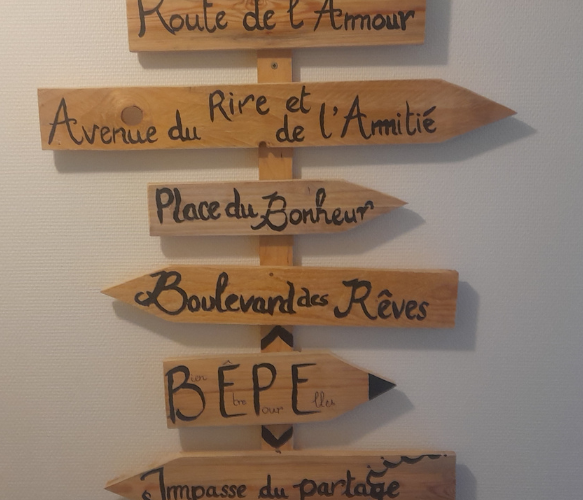 Route de l'Amour
Avenue du Rire et
de l'Amitié
Place du Bonheur
Boulevard des Rêves
BÊPE
Impasse du partage